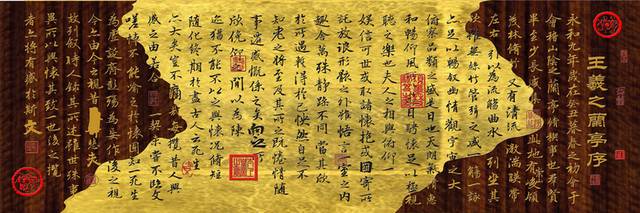 王羲之蘭亭序
永和九年歲在癸丑暮春之初會于
會稽山陰之蘭亭脩稧事也群賢
畢至少長咸集此地有峻領
茂林脩竹又有清流激湍暎帶
左右以為流觴曲水列坐其
無絲竹管弦之盛一
足以暢敘幽情觀宇宙之大
俯察品類之盛是日也天朗氣清惠
和暢仰風騁懷足以極視
聽之樂也夫人之相與俯仰一
娛信可世或取諸懷抱或因寄所
託放浪形骸之外雖悟言一室之內
趣舍萬殊靜躁不同當其欣
於所遇輒得於己快然自足不
知老之將至及其所之既惓情隨
事遷感慨係之矣向之
欣俛仰間以為陳
迹猶不能不以之興懷況脩短
隨化終期於盡古人云死生
亦大矣豈不痛哉每攬昔人興
感之由若合一契未嘗不臨文
嗟悼不能喻之於懷固知一死生
為虛誕齊彭殤為妄作後之視
今亦由今之視昔悲夫
故列敘時人錄其所述雖世殊事
異所以興懷其致一也後之攬
者亦將有感於斯文